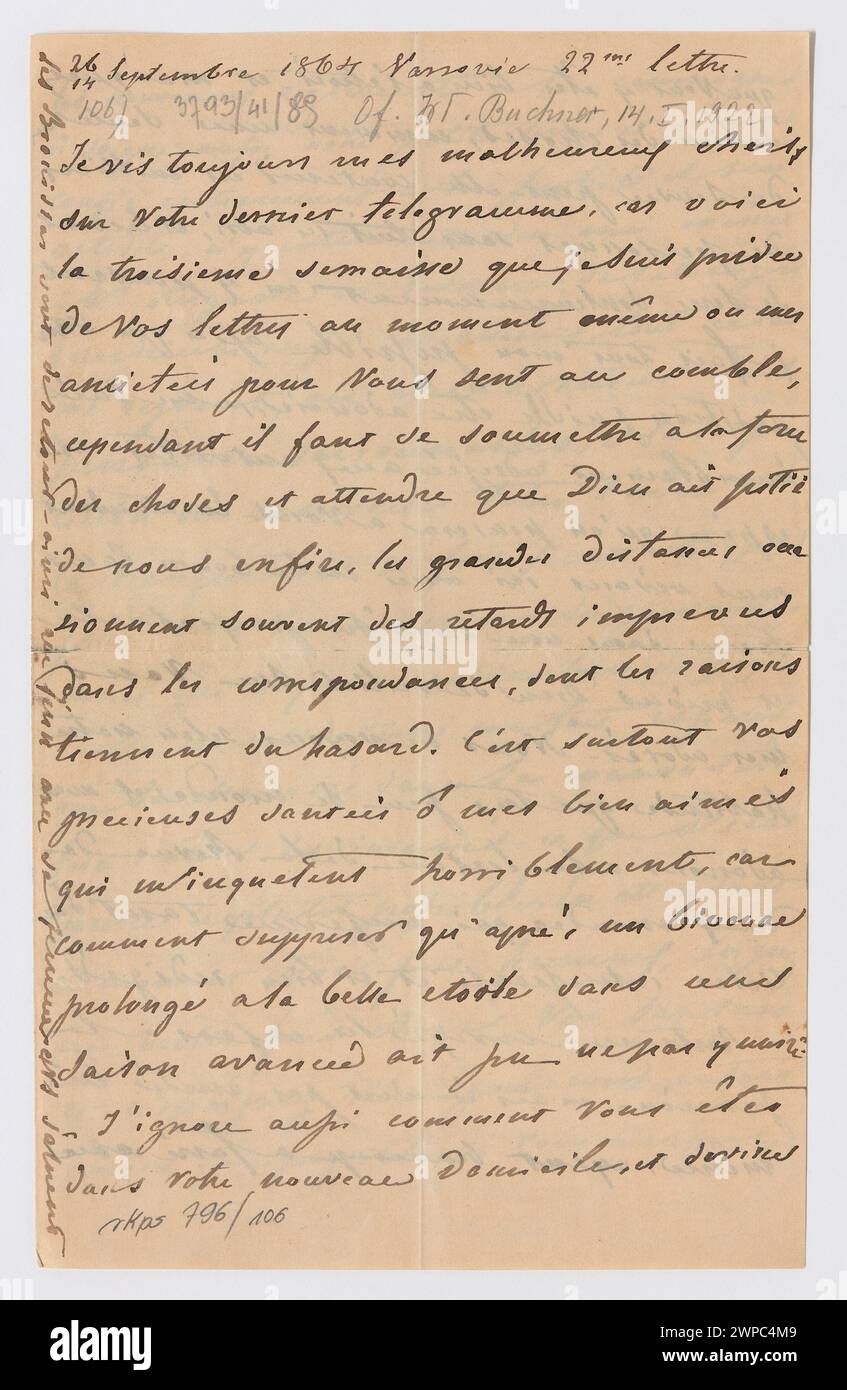 26/14 Septembre 1864 Varsovie 22me lettre.
106) 3793/41/89 Of. Wł. Buchner, 14. I. 1922
Je vis toujours mes malheureux cheris
sur votre dernier telegramme, car voici
la troisieme semaine que je suis privée
de Vos lettres au moment même ou mes
anxieteés pour Vous sent au comble,
cependant il faut se soumettre a la force
des choses et attendre que Dieu ait pitié
de nous enfin, les grandes distances occa
sionnent souvent des retards imprevus
dans les correspondances, dont les raisons
tiennent du hasard. C'est surtout vos
precieuses santeés ô mes bien aimés
qui m'inquetent horriblement, car
comment supposer qu'aprés un bivouac
prolongé a la belle etoile dans une
saison avanceé ait pu ne pas y nuire.
J'ignore aussi comment Vous êtes
dans votre nouveau domicile, et
rkps 796/106
les sont de retour
alamy
a
Image ID: 2WPC4M9
www.alamy.com